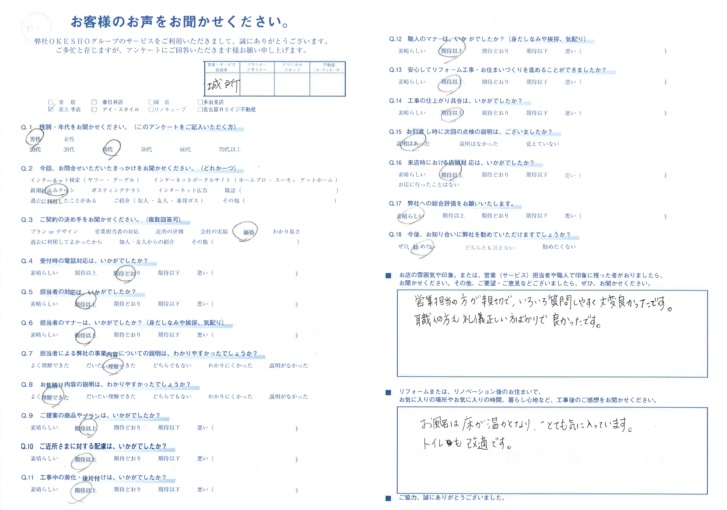 お客様のお声をお聞かせください。
弊社OKESHOグループのサービスをご利用いただきまして、誠にありがとうございます。
ご多忙と存じますが、アンケートにご回答いただきます様お願い申し上げます。
Q.1 性別・年代をお聞かせください。（このアンケートをご記入いただく方）
男性 女性
20代 30代 40代 50代 60代 70代以上
Q.2 今回、お問合せいただいたきっかけをお聞かせください。（どれか一つ）
インターネット検索（ヤフー・グーグル） インターネットポータルサイト（ホームプロ・スーモ、アットホーム）
新聞折込みチラシ ポスティングチラシ インターネット広告 雑誌（ ）
過去に利用したことがある ご紹介（知人・友人・東邦ガス） その他（ ）
Q.3 ご契約の決め手をお聞かせください。（複数回答可）
プラン or デザイン 営業担当者の対応 近所の評判 会社の実績 価格 わかり易さ
過去に利用してよかったから 知人・友人からの紹介 その他（ ）
Q.4 受付時の電話対応は、いかがでしたか？
素晴らしい 期待以上 期待どおり 期待以下 悪い（ ）
Q.5 担当者の対応は、いかがでしたか？
素晴らしい 期待以上 期待どおり 期待以下 悪い（ ）
Q.6 担当者のマナーは、いかがでしたか？（身だしなみや挨拶、気配り）
素晴らしい 期待以上 期待どおり 期待以下 悪い（ ）
Q.7 担当者による弊社の事業内容についての説明は、わかりやすかったでしょうか？
よく理解できた だいたい理解できた どちらでもない わかりにくかった 説明がなかった
Q.8 お見積り内容の説明は、わかりやすかったでしょうか？
よく理解できた だいたい理解できた どちらでもない わかりにくかった 説明がなかった
Q.9 ご提案の商品やプランは、いかがでしたか？
素晴らしい 期待以上 期待どおり 期待以下 悪い（ ）
Q.10 ご近所さまに対する配慮は、いかがでしたか？
素晴らしい 期待以上 期待どおり 期待以下 悪い（ ）
Q.11 工事中の美化・後片付けは、いかがでしたか？
素晴らしい 期待以上 期待どおり 期待以下 悪い（ ）
Q.12 職人のマナーは、いかがでしたか？（身だしなみや挨拶、気配り）
素晴らしい 期待以上 期待どおり 期待以下 悪い（ ）
Q.13 安心してリフォーム工事・お住まいづくりを進めることができましたか？
素晴らしい 期待以上 期待どおり 期待以下 悪い（ ）
Q.14 工事の仕上がり具合は、いかがでしたか？
素晴らしい 期待以上 期待どおり 期待以下 悪い（ ）
Q.15 お引渡し時に次回の点検の説明は、ございましたか？
説明はあった 説明はなかった 覚えていない
Q.16 来店時における店頭対応は、いかがでしたか？
素晴らしい 期待以上 期待どおり 期待以下 悪い（ ）
お店に行ったことはない
Q.17 弊社への総合評価をお願いいたします。
素晴らしい 期待以上 期待どおり 期待以下 悪い（ ）
Q.18 今後、お知り合いに弊社を勧めていただけますでしょうか？
ぜひ、勧めたい どちらとも言えない 勧めたくない
■ お店の雰囲気や印象、または、営業（サービス）担当者や職人で印象に残った者がおりましたら、
お聞かせください。その他、ご要望・ご意見などございましたら、ぜひ、お聞かせください。
営業担当の方が親切で、いろいろ質問しやすく大変良かったです。
職人の方も礼儀正しい方ばかりで良かったです。
■ リフォームまたは、リノベーション後のお住まいで、
お気に入りの場所やお気に入りの時間、暮らし心地など、工事後のご感想をお聞かせください。
お風呂は床が温かとなり、とても気に入っています。
トイレも改適です。
■ ご協力、誠にありがとうございました。